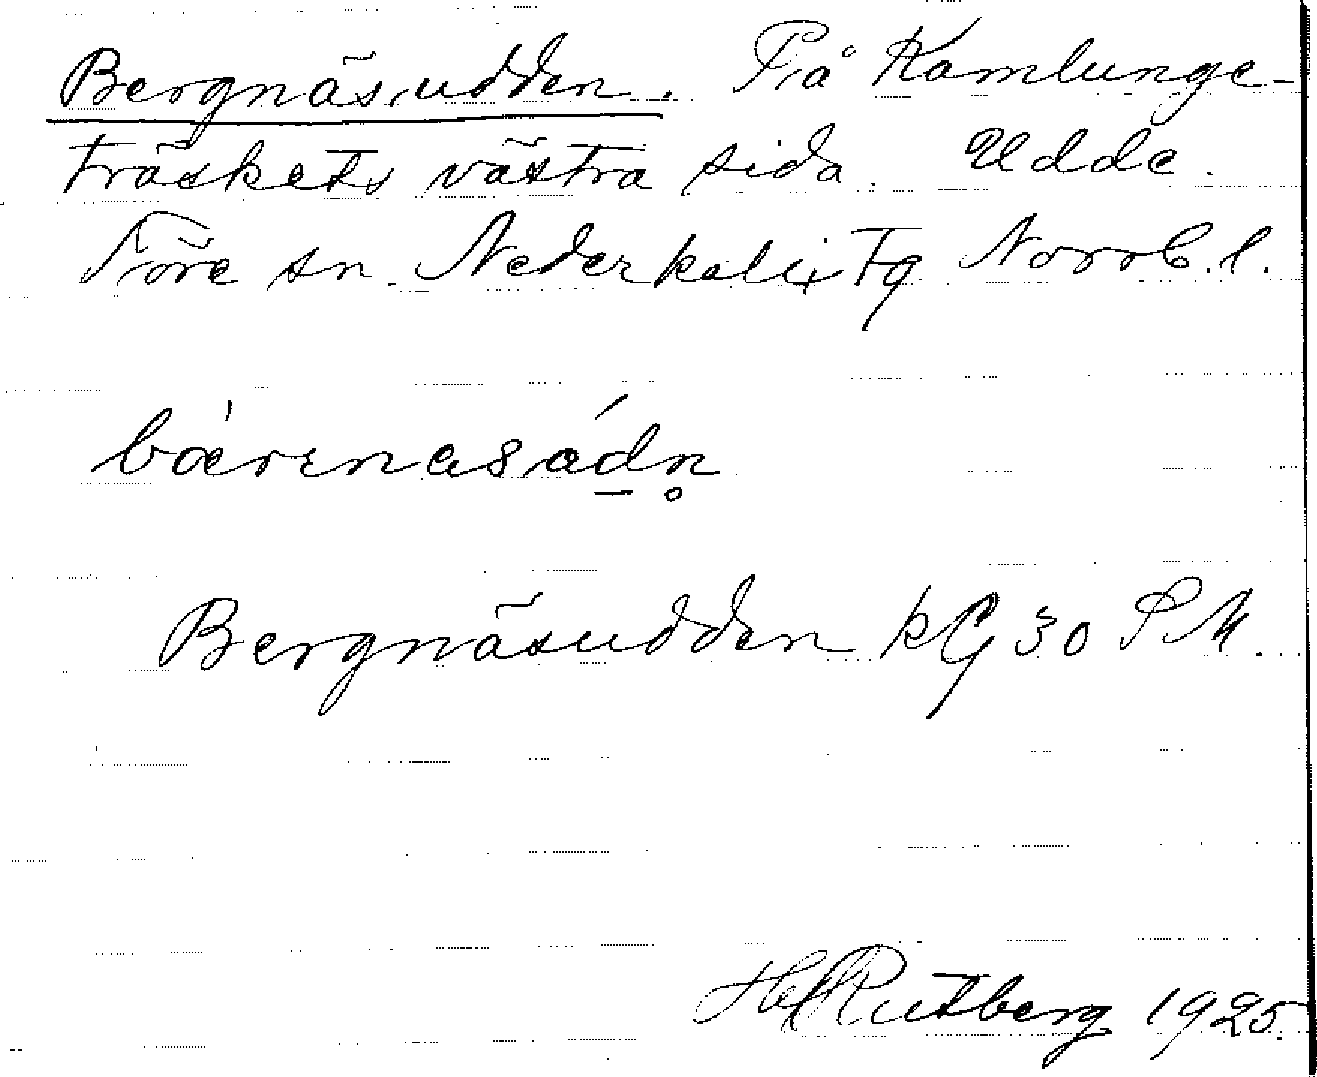 Bergnäsudden. På Kamlunge-
träskets västra sida. Udde.
Töre sn. Nederkalix tg Norrb. l.
bærɛnasádn̥
Bergnäsudden kG 30 SM.
Hd Rutberg 1925.